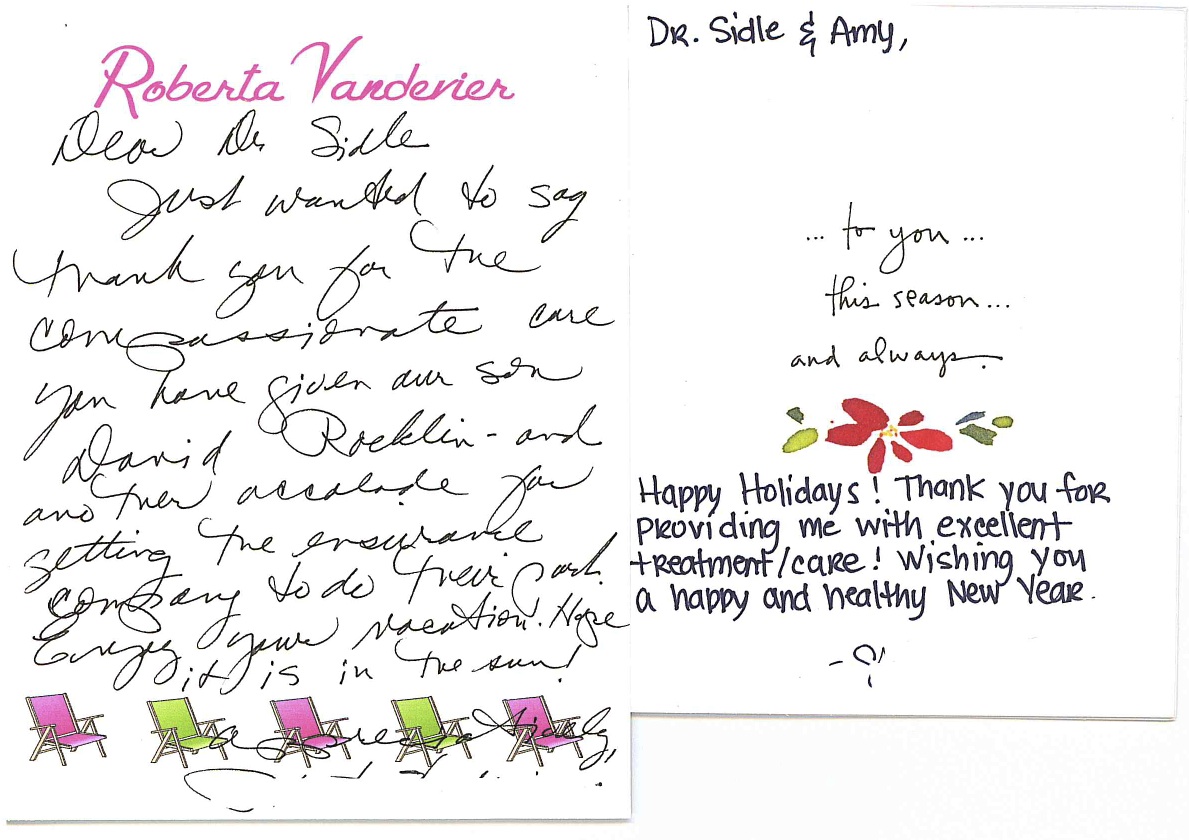 Roberta Vandevier
Dear Dr Sidle
Just wanted to say
thank you for the
compassionate care
you have given our son
David Rocklin - and
another accolade for
getting the insurance
company to do their part.
Enjoy your vacation. Hope
it is in the sun!
Appreciatively,
Dr. Sidle & Amy,
... to you ...
this season...
and always.
Happy Holidays! Thank you for
providing me with excellent
treatment/care! Wishing you
a happy and healthy New Year.